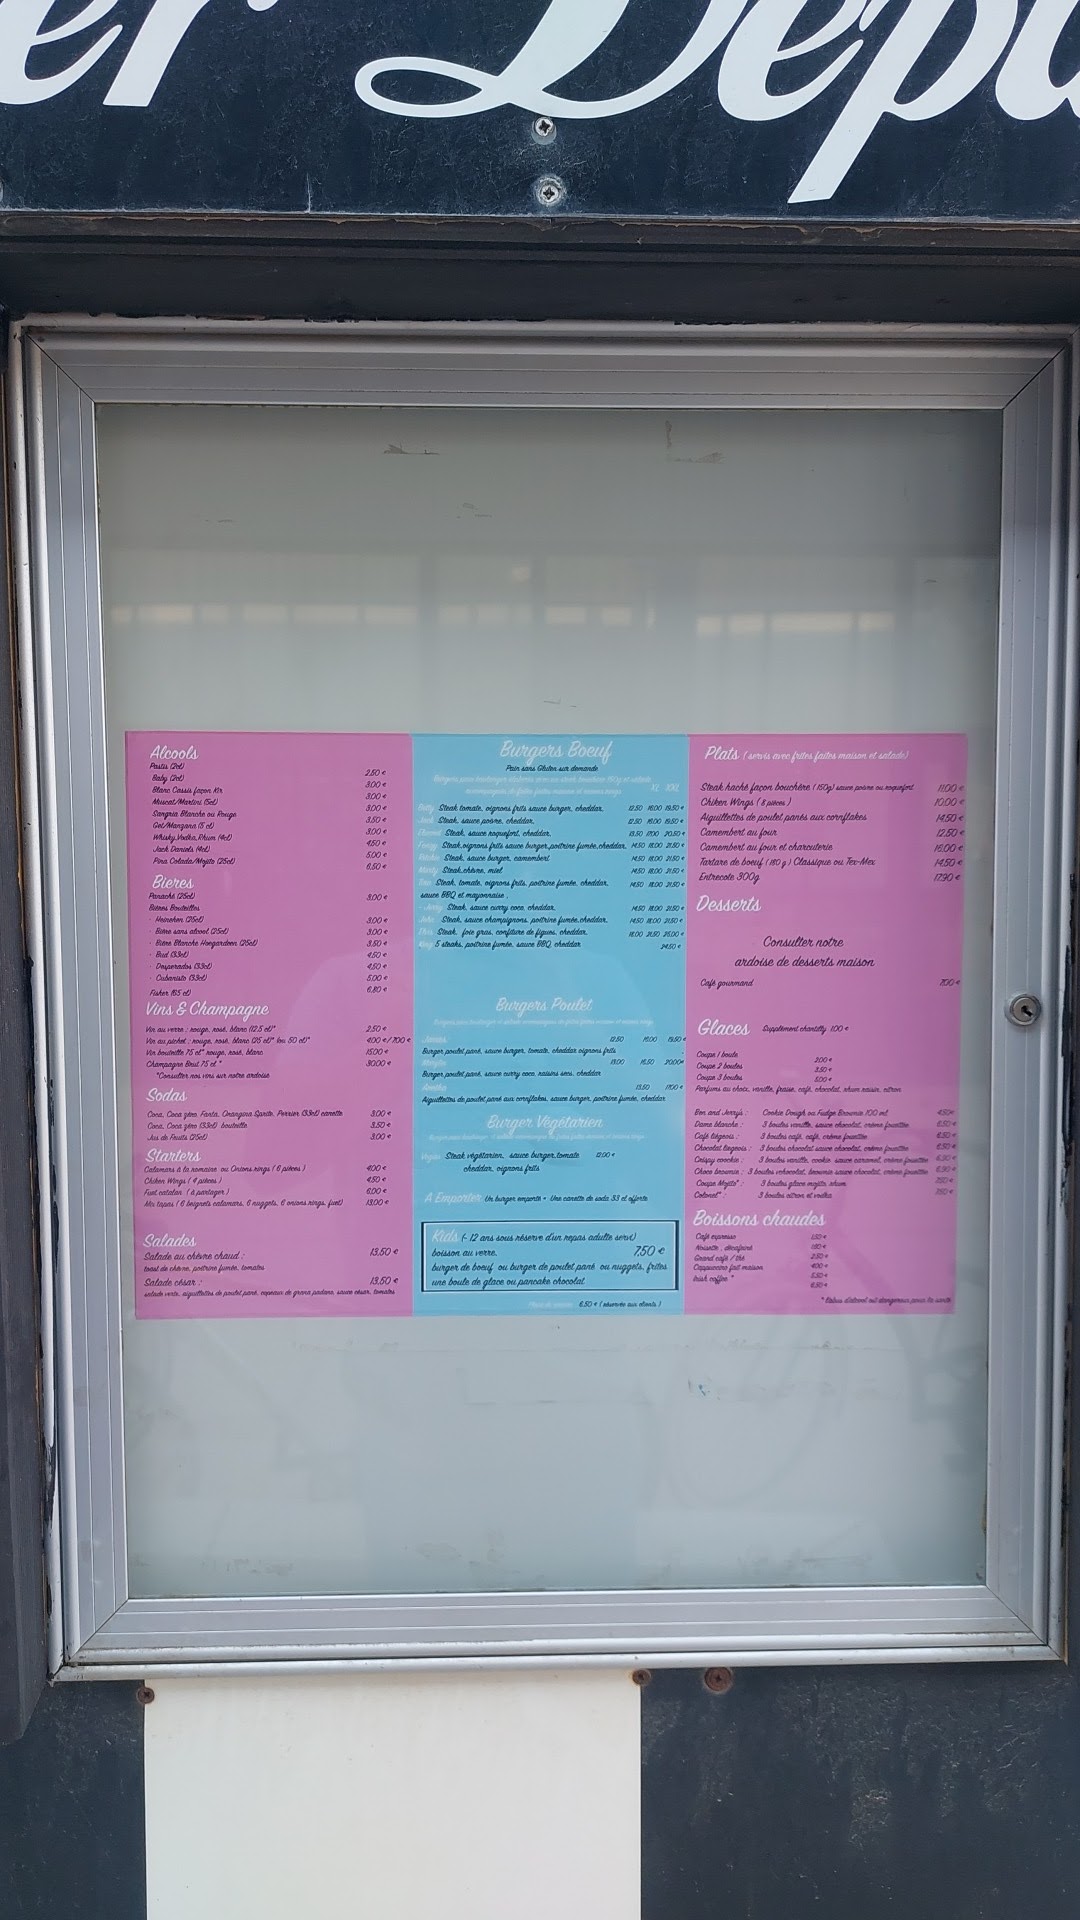 er Depu
Alcools
Pastis (2cl) 2.50 €
Baby (2cl) 3.00 €
Blanc Cassis façon Kir 3.00 €
Muscat/Martini (5cl) 3.00 €
Sangria Blanche ou Rouge 3.50 €
Get/Manzana (5 cl) 3.00 €
Whisky, Vodka, Rhum (4cl) 4.50 €
Jack Daniels (4cl) 5.00 €
Pina Colada/Mojito (25cl) 6.50 €
Bieres
Panaché (25cl) 3.00 €
Bières Bouteilles
- Heineken (25cl) 3.00 €
- Bière sans alcool (25cl) 3.00 €
- Bière Blanche Hoegardeen (25cl) 3.50 €
- Bud (33cl) 4.50 €
- Desperados (33cl) 4.50 €
- Cubanisto (33cl) 5.00 €
Fisher (65 cl) 6.80 €
Vins & Champagne
Vin au verre : rouge, rosé, blanc (12.5 cl)* 2.50 €
Vin au pichet : rouge, rosé, blanc (25 cl)* (ou 50 cl)* 4.00 € / 7.00 €
Vin bouteille 75 cl* rouge, rosé, blanc 15.00 €
Champagne Brut 75 cl * 30.00 €
*Consulter nos vins sur notre ardoise
Sodas
Coca, Coca zéro, Fanta, Orangina, Sprite, Perrier (33cl) canette 3.00 €
Coca, Coca zéro (33cl) bouteille 3.50 €
Jus de Fruits (25cl) 3.00 €
Starters
Calamars à la romaine ou Onions rings ( 6 pièces ) 4.00 €
Chiken Wings ( 4 pièces ) 4.50 €
Fuet catalan ( à partager ) 6.00 €
Mix tapas ( 6 beignets calamars, 6 nuggets, 6 onions rings, fuet) 13.00 €
Salades
Salade au chèvre chaud : 13,50 €
toast de chèvre, poitrine fumée, tomates
Salade césar : 13,50 €
salade verte, aiguillettes de poulet pané, copeaux de grana padano, sauce césar, tomates
Burgers Boeuf
Pain sans Gluten sur demande
XL XXL
Betty Steak tomate, oignons frits sauce burger, cheddar, 12.50 16.00 19.50 €
Jack Steak, sauce poivre, cheddar, 12.50 16.00 19.50 €
Steak, sauce roquefort, cheddar, 13.50 17.00 20.50 €
Steak, oignons frits sauce burger, poitrine fumée, cheddar, 14.50 18.00 21.50 €
Steak, sauce burger, camembert 14.50 18.00 21.50 €
Marty Steak, chèvre, miel 14.50 18.00 21.50 €
Steak, tomate, oignons frits, poitrine fumée, cheddar, 14.50 18.00 21.50 €
sauce BBQ et mayonnaise ,
Jerry Steak, sauce curry coco, cheddar, 14.50 18.00 21.50 €
John Steak, sauce champignons, poitrine fumée, cheddar, 14.50 18.00 21.50 €
Elvis Steak, foie gras, confiture de figues, cheddar, 18.00 21.50 25.00 €
King 5 steaks, poitrine fumée, sauce BBQ, cheddar 24.50 €
Burgers Poulet
James 12.50 16.00 19.50 €
Burger poulet pané, sauce burger, tomate, cheddar oignons frits
13.00 16.50 20.00€
Burger poulet pané, sauce curry coco, raisins secs, cheddar
13.50 17.00 €
Aiguillettes de poulet pané aux cornflakes, sauce burger, poitrine fumée, cheddar
Burger Végétarien
Steak végétarien, sauce burger, tomate 12.00 €
cheddar, oignons frits
A Emporter Un burger emporté = Une canette de soda 33 cl offerte
Kids (- 12 ans sous réserve d'un repas adulte servi)
boisson au verre, 7,50 €
burger de boeuf ou burger de poulet pané ou nuggets, frites
une boule de glace ou pancake chocolat
6.50 € ( réservée aux clients )
Plats ( servis avec frites faites maison et salade)
Steak haché façon bouchère ( 150g) sauce poivre ou roquefort 11.00 €
Chiken Wings ( 8 pièces ) 10.00 €
Aiguillettes de poulet panés aux cornflakes 14.50 €
Camembert au four 12.50 €
Camembert au four et charcuterie 16.00 €
Tartare de boeuf ( 180 g ) Classique ou Tex-Mex 14.50 €
Entrecote 300g 17.90 €
Desserts
Consulter notre
ardoise de desserts maison
Café gourmand 7.00 €
Glaces Supplément chantilly 1.00 €
Coupe 1 boule 2.00 €
Coupe 2 boules 3.50 €
Coupe 3 boules 5.00 €
Parfums au choix, vanille, fraise, café, chocolat, rhum raisin, citron
Ben and Jerry's : Cookie Dough ou Fudge Brownie 100 ml 4.50€
Dame blanche : 3 boules vanille, sauce chocolat, crème fouettée 6.50 €
Café liégeois : 3 boules café, café, crème fouettée 6.50 €
Chocolat liegeois : 3 boules chocolat sauce chocolat, crème fouettée 6.50 €
Crispy coockie : 3 boules vanille, cookie sauce caramel, crème fouettée 6.50 €
Choco brownie : 3 boules vchocolat, brownie sauce chocolat, crème fouettée 6.90 €
Coupe Mojito* : 3 boules glace mojito, rhum 7.50 €
Colonel* : 3 boules citron et vodka 7.50 €
Boissons chaudes
Café expresso 1.50 €
Noisette , décafeiné 1.90 €
Grand café / thé 2.50 €
Cappuccino fait maison 4.00 €
5.50 €
Irish coffee * 6.50 €
* l'abus d'alcool est dangereux pour la santé